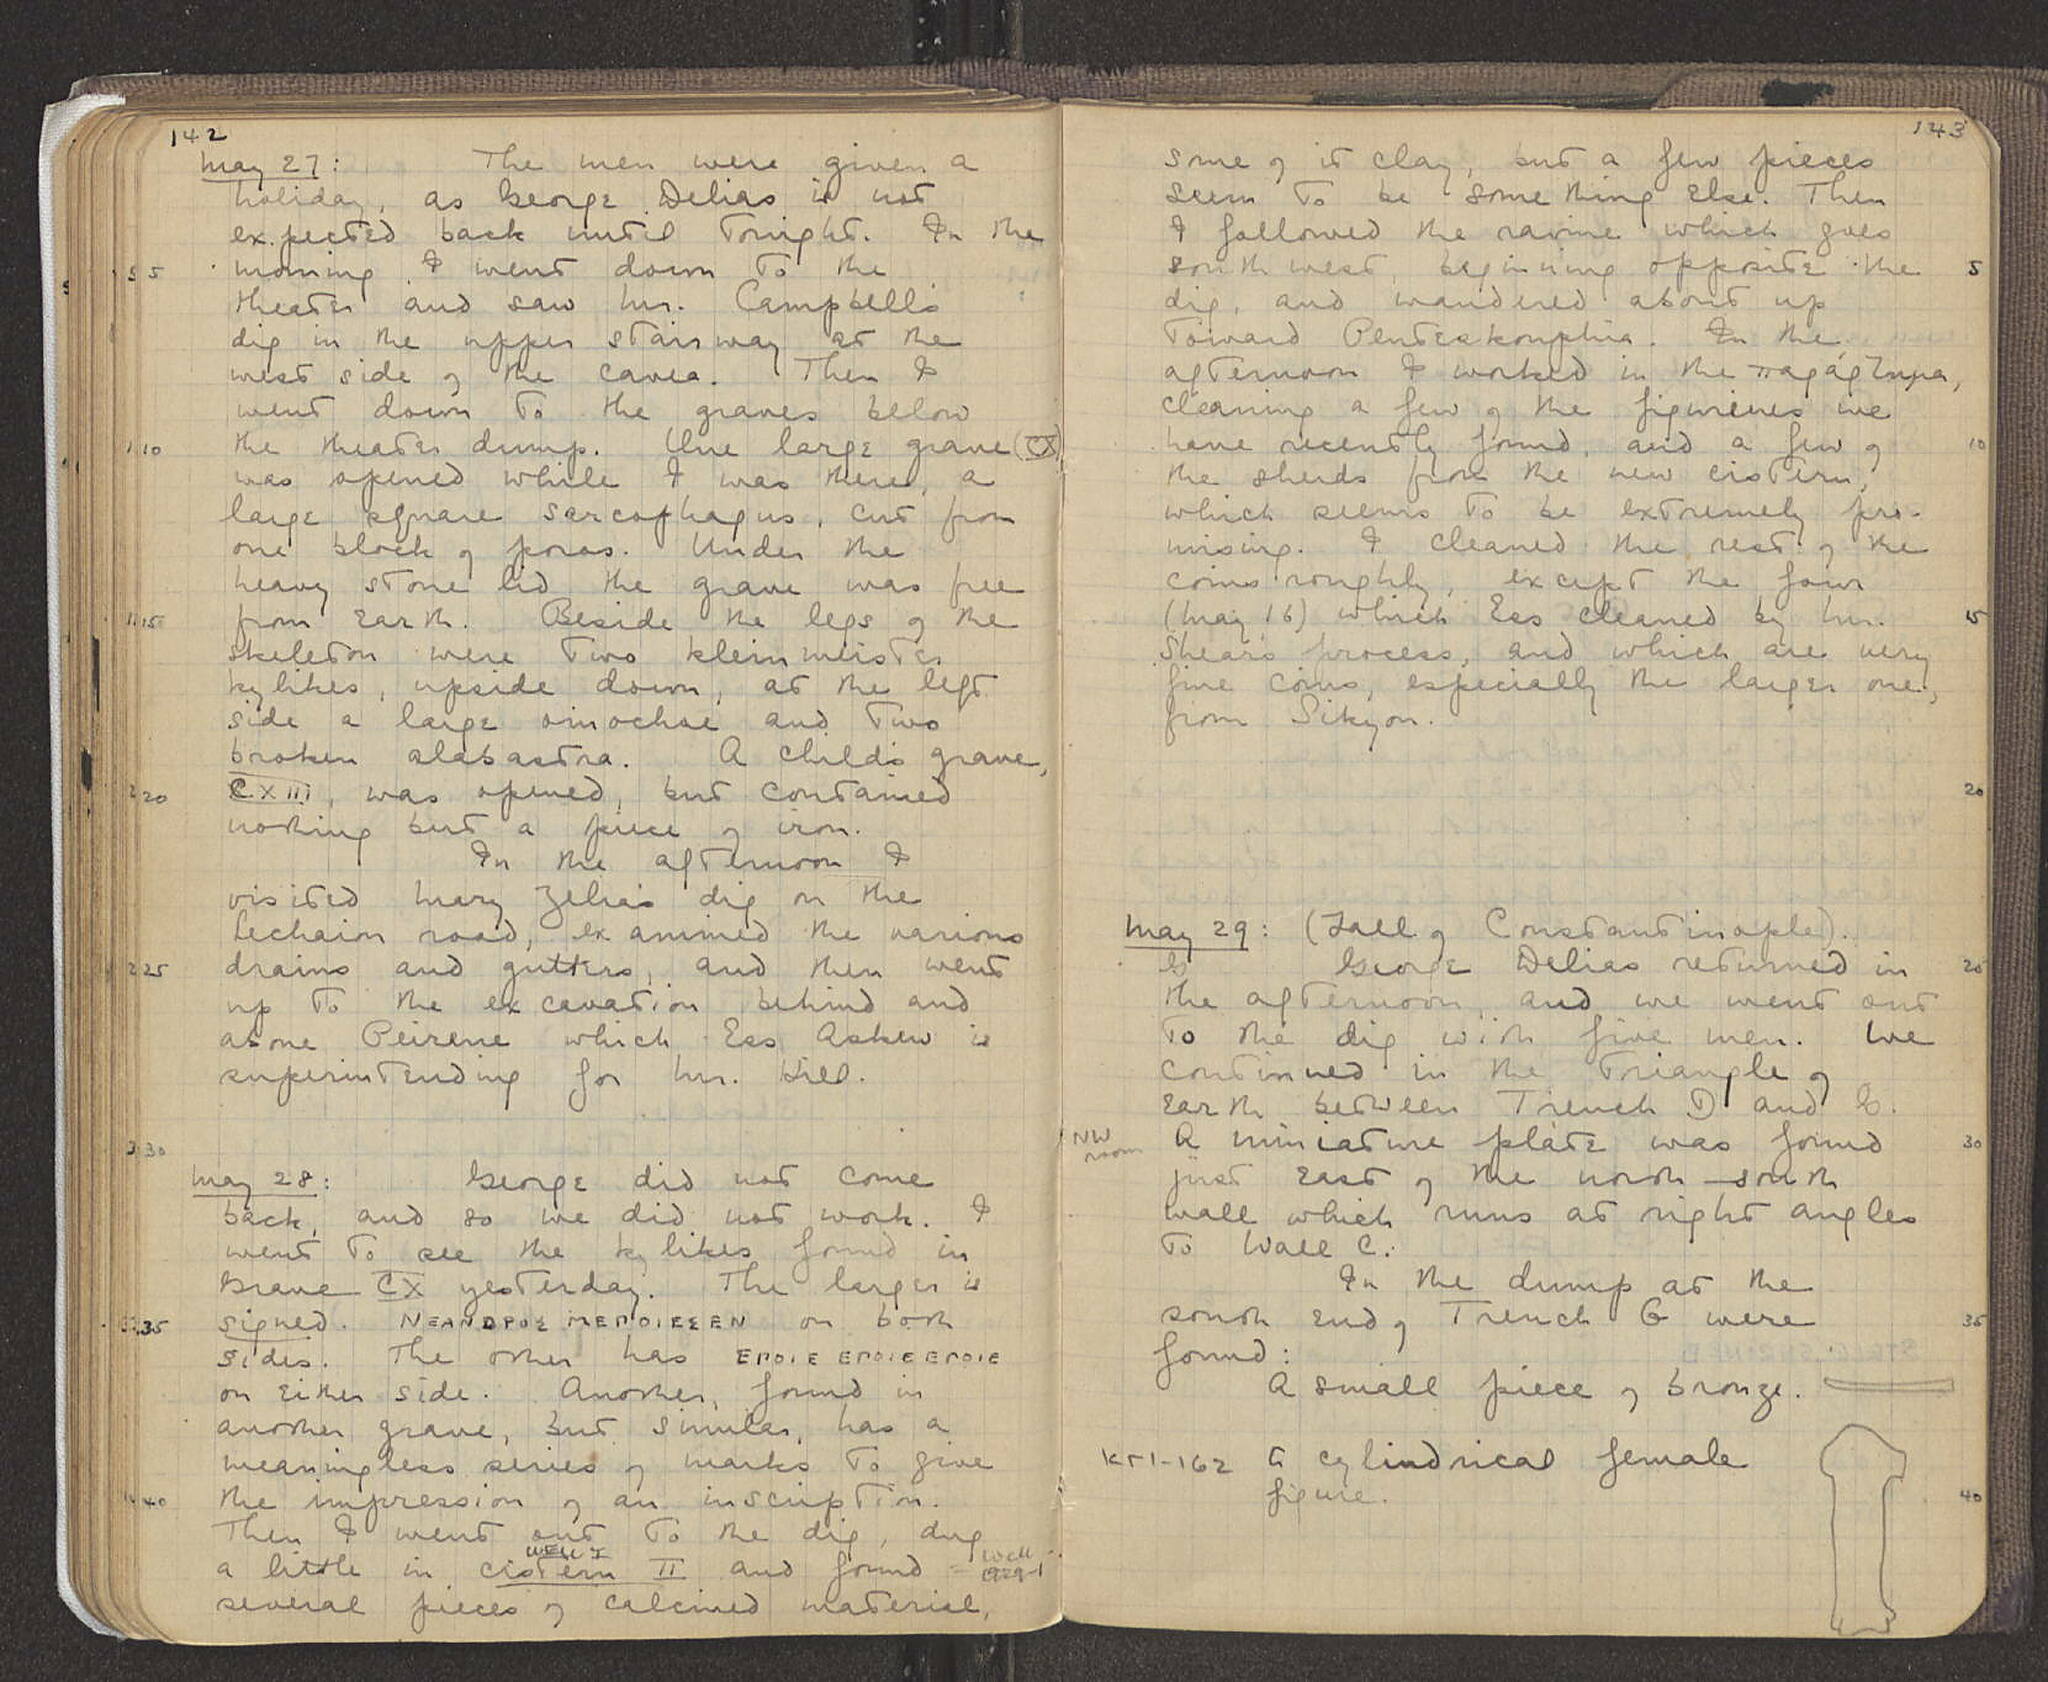 142
May 27: The men were given a
holiday, as George Delias is not
expected back until tonight. In the
5 morning I went down to the
theater and saw Mr. Campbell's
dig in the upper stairway at the
west side of the cavea. Then I
went down to the graves below
10 the theater dump. One large grave (CX)
was opened while I was there, a
large square sarcophagus, cut from
one block of poros. Under the
heavy stone lid the grave was free
15 from earth. Beside the legs of the
skeleton were two kleinmeister
kylikes, upside down, at the left
side a large oinochoe and two
broken alabastra. A child's grave,
20 CXIII, was opened, but contained
nothing but a piece of iron.
In the afternoon I
visited Mary Zelia's dig on the
Lechaion road, examined the various
25 drains and gutters, and then went
up to the excavation behind and
above Peirene which Ess Askew is
superintending for Mr. Hill.
30
May 28: George did not come
back, and so we did not work. I
went to see the kylikes found in
Grave CX yesterday. The larger is
35 signed. ΝΕΑΝΔΡΟΣ ΜΕΠΟΙΕΣΕΝ on both
sides. The other has ΕΠΟΙΕ ΕΠΟΙΕΕΠΟΙΕ
on either side. Another, found in
another grave, but similar, has a
meaningless series of marks to give
40 the impression of an inscription.
Then I went out to the dig, dug
WELL I
a little in cistern II and found = Well 1929-1
several pieces of calcined material,
143
some of it clay, but a few pieces
seem to be something else. Then
I followed the ravine which goes
southwest, beginning opposite the 5
dig, and wandered about up
toward Penteskouphia. In the
afternoon I worked in the παράρτημα,
cleaning a few of the figurines we
have recently found, and a few of 10
the sherds from the new cistern,
which seems to be extremely pro-
mising. I cleaned the rest of the
coins roughly, except the four
(May 16) which Ess cleaned by Mr. 15
Shear's process, and which are very
fine coins, especially the larger one,
from Sikyon.
20
May 29: (Fall of Constantinople).
G George Delias returned in 25
the afternoon, and we went out
to the dig with five men. We
continued in the triangle of
earth between Trench D and G.
NW room A miniature plate was found 30
just east of the north-south
wall which runs at right angles
to Wall C.
In the dump at the
south end of Trench G were 35
found:
A small piece of bronze.
KT1-162 A cylindrical female
figure. 40